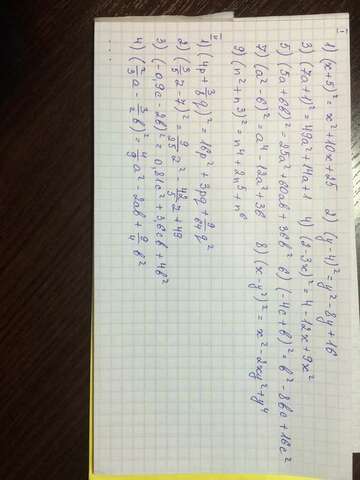 I
1) (x+5)² = x²+10x+25 2) (y-4)² = y²-8y+16
3) (7a+1)² = 49a²+14a+1 4) (2-3x)² = 4-12x+9x²
5) (5a+6b)² = 25a²+60ab+36b² 6) (-4c+b)² = b²-8bc+16c²
7) (a²-6)² = a⁴-12a²+36 8) (x-y²)² = x²-2xy²+y⁴
9) (n²+n³)² = n⁴+2n⁵+n⁶
II
1) (4p+3/8q)² = 16p²+3pq+9/64q²
2) (3/5z-7)² = 9/25z²-42/5z+49
3) (-0,9c-2b)² = 0,81c²+3,6cb+4b²
4) (2/3a-3/2b)² = 4/9a²-2ab+9/4b²